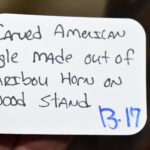 Carved American
gle made out of
aribou Horn on
ood Stand
B-17